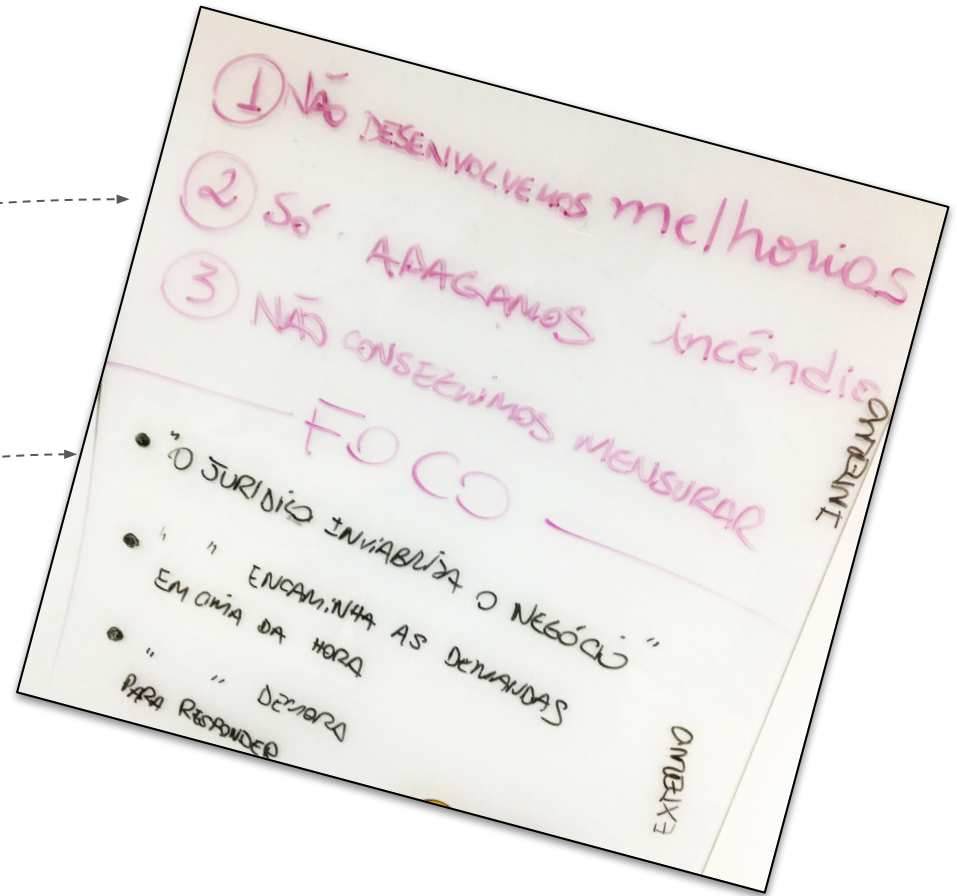 1 NÃO DESENVOLVEMOS melhorias
2 Só APAGAMOS incêndio
3 NÃO CONSEGUIMOS MENSURAR
INTERNO
FOCO
• "O JURIDICO INVIABILIZA O NEGÓCIO"
• " " ENCAMINHA AS DEMANDAS
EM CIMA DA HORA
• " " DEMORA
PARA RESPONDER
EXTERNO